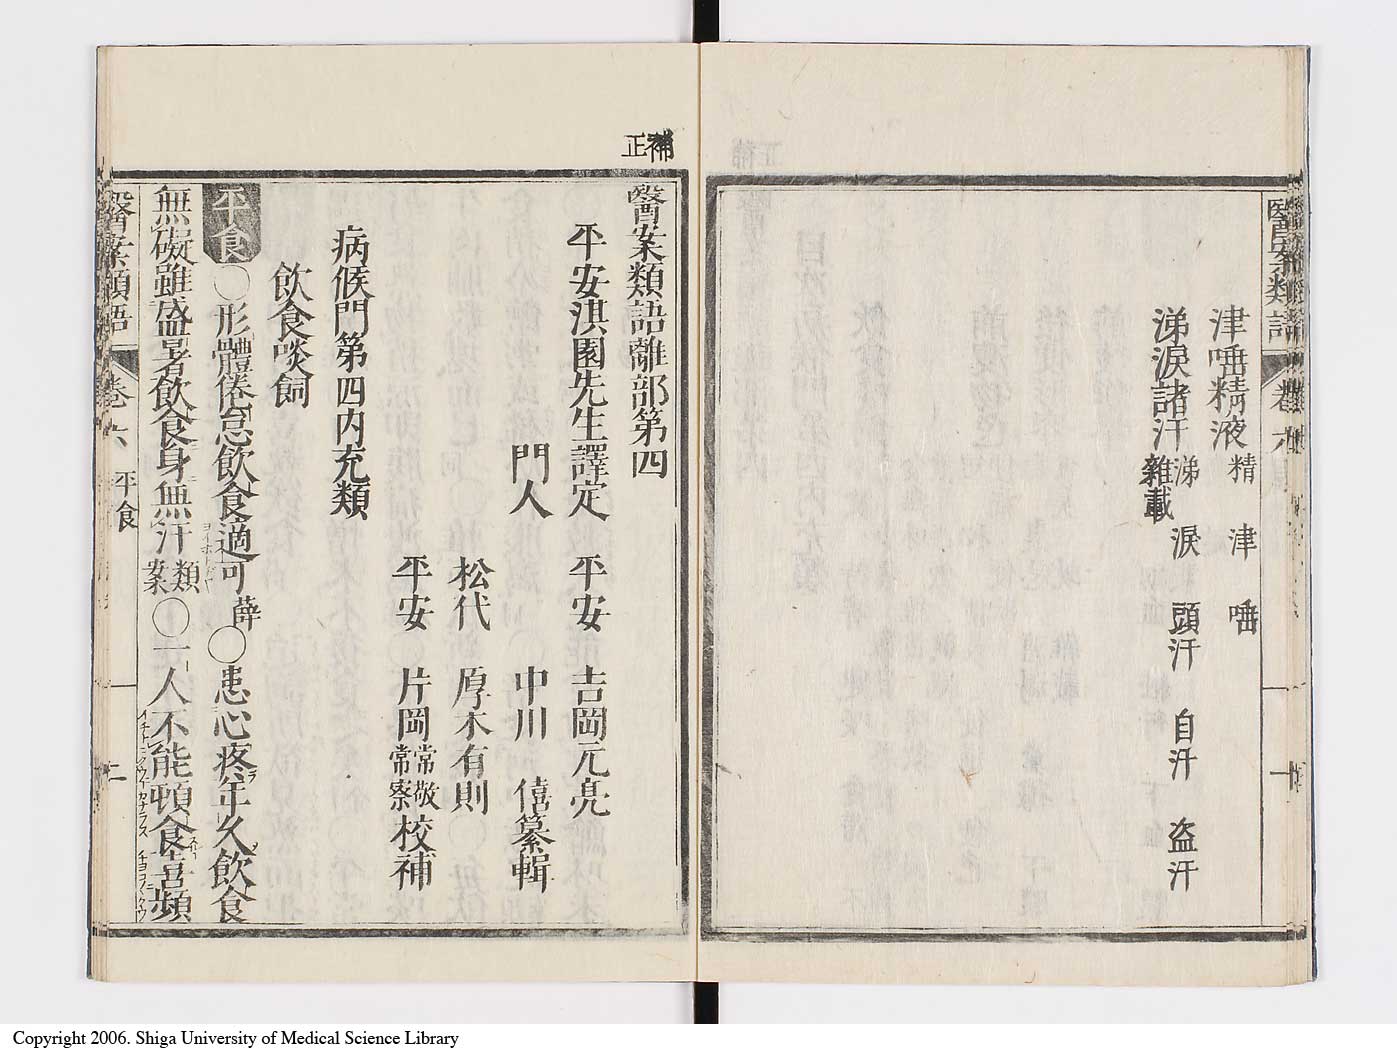 醫案類語
津唾精液 精 津 唾
涕淚諸汗 涕 淚 頭汗 自汗 盗汗
雜載
補正
醫案類語離部第四
平安淇園先生譯定 平安 吉岡元亮
門人 中川 僖纂輯
松代 厚木有則
平安 片岡 常敬 常察 校補
病候門第四内充類
飲食啖飼
平食 ○形體倦怠飲食適可 薛 ○患心疼年久飲食
無礙雖盛暑飲食身無汗 類案 ○一人不能頓食喜頻
醫案類語 卷六 平食 二
Copyright 2006. Shiga University of Medical Science Library